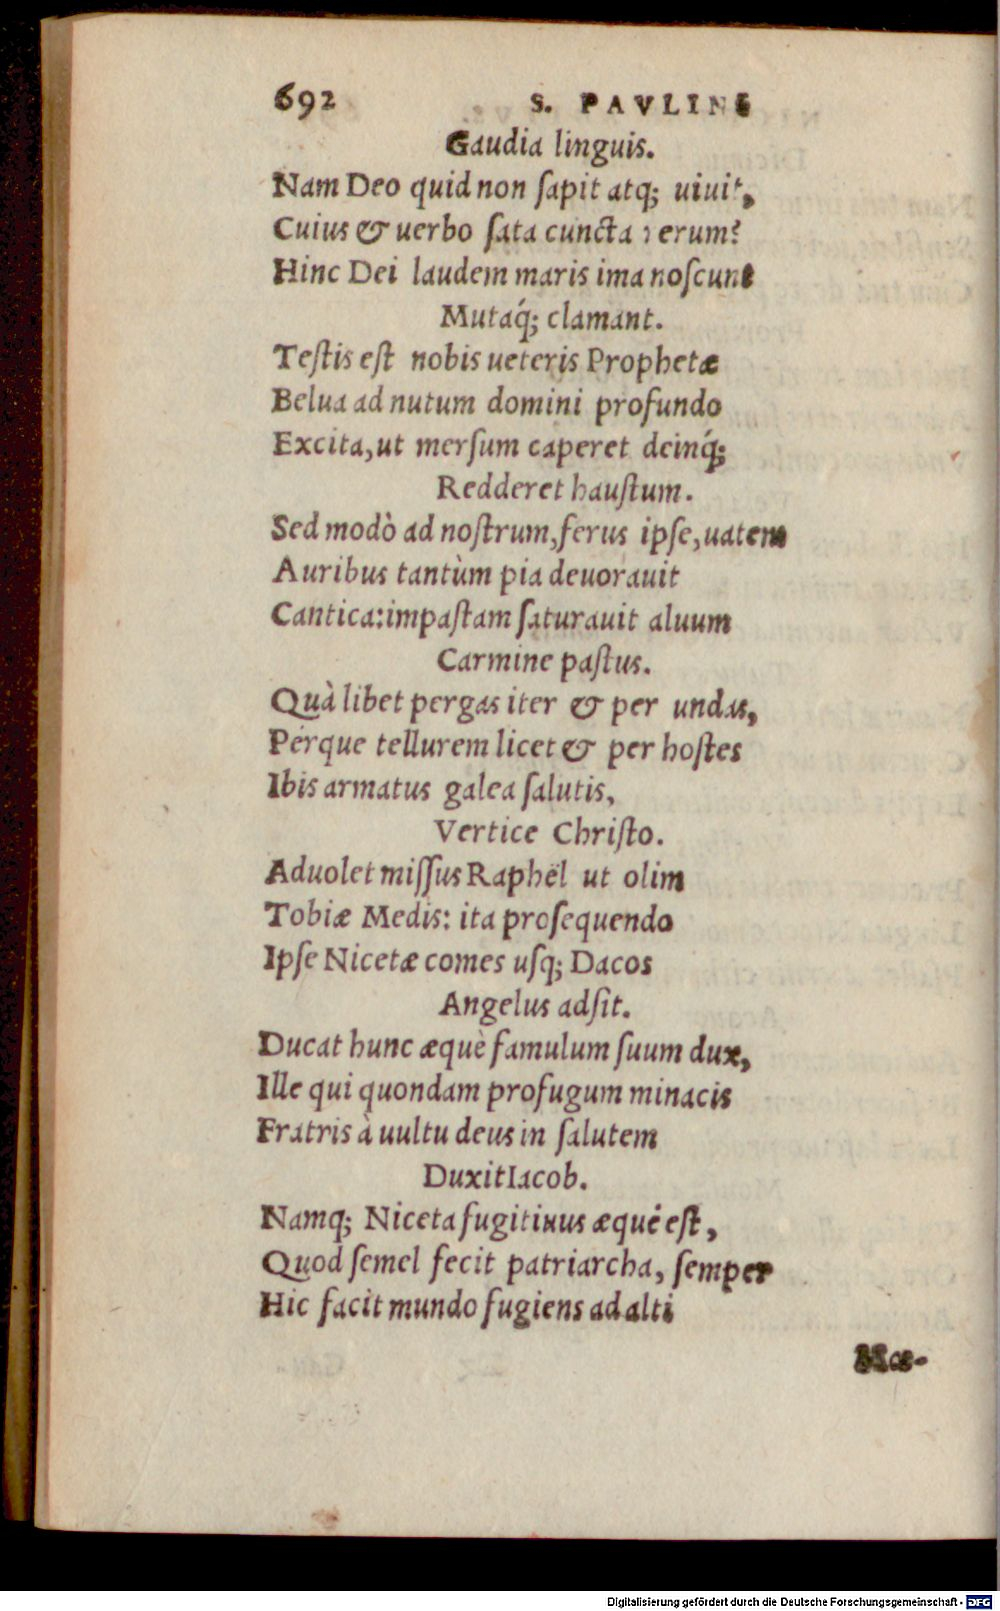 692 S. PAVLINI
Gaudia linguis.
Nam Deo quid non ſapit atq; uiuit,
Cuius & uerbo ſata cuncta rerum?
Hinc Dei laudem maris ima noſcunt
Mutaq́; clamant.
Teſtis eſt nobis ueteris Prophetæ
Belua ad nutum domini profundo
Excita, ut merſum caperet deinq́;
Redderet hauſtum.
Sed modò ad noſtrum, ferus ipſe, uatem
Auribus tantùm pia deuorauit
Cantica: impaſtam ſaturauit aluum
Carmine paſtus.
Quà libet pergas iter & per undas,
Perque tellurem licet & per hoſtes
Ibis armatus galea ſalutis,
Vertice Chriſto.
Aduolet miſſus Raphël ut olim
Tobiæ Medis: ita proſequendo
Ipſe Nicetæ comes uſq; Dacos
Angelus adſit.
Ducat hunc æquè famulum ſuum dux,
Ille qui quondam profugum minacis
Fratris à uultu deus in ſalutem
Duxit Iacob.
Namq; Niceta fugitiuus æquè eſt,
Quod ſemel fecit patriarcha, ſemper
Hic facit mundo fugiens ad alti
Mœ-
Digitalisierung gefördert durch die Deutsche Forschungsgemeinschaft - DFG